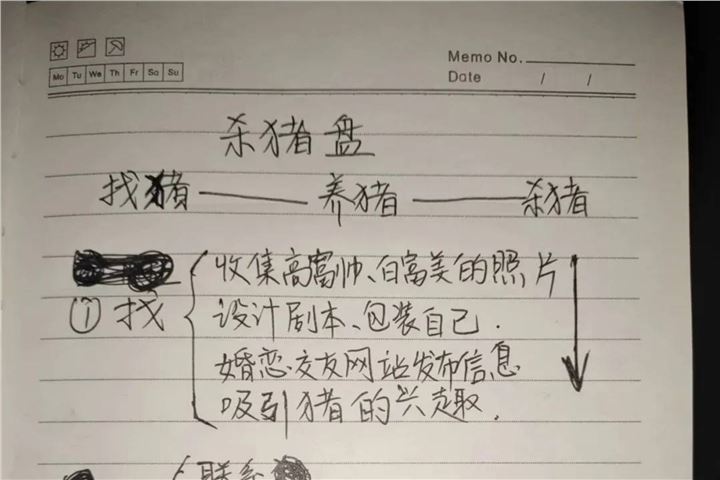 Memo No.
Mo Tu We Th Fr Sa Su
Date / /
杀猪盘
找猪——养猪——杀猪
收集高富帅、白富美的照片
① 找 设计剧本、包装自己.
婚恋交友网站发布信息
吸引猪的兴趣.
联系